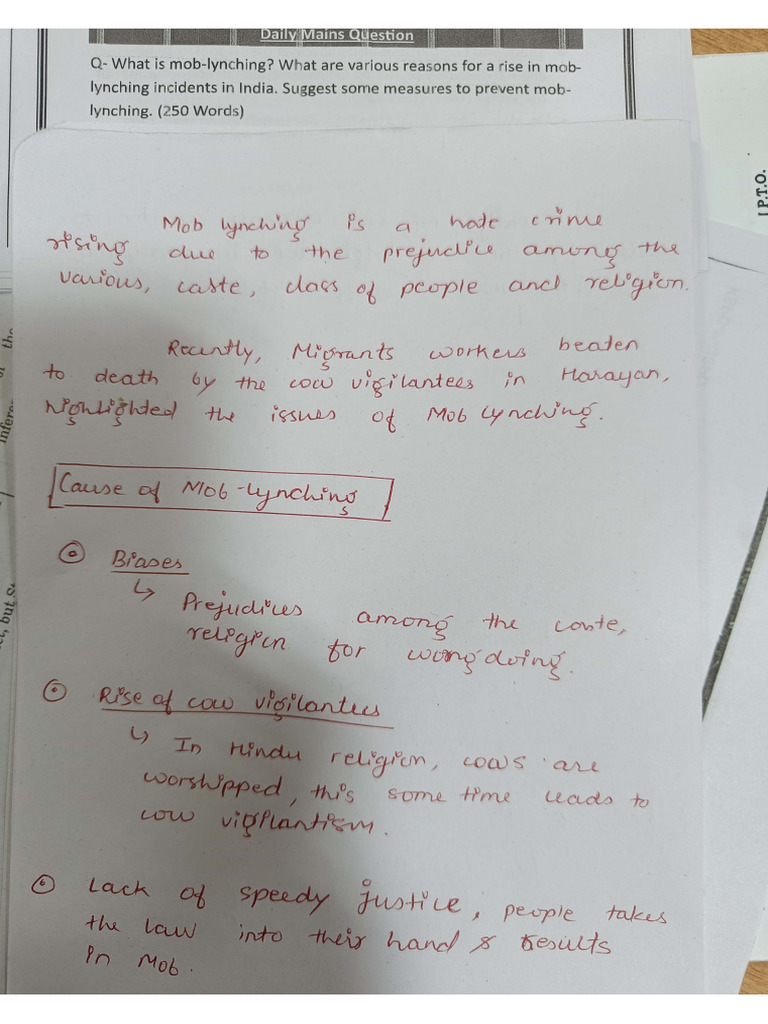 Daily Mains Question
Q- What is mob-lynching? What are various reasons for a rise in mob-
lynching incidents in India. Suggest some measures to prevent mob-
lynching. (250 Words)
[P.T.O.
Mob lynching is a hate crime
rising due to the prejudice among the
various, caste, class of people and religion.
Recently, Migrants workers beaten
to death by the cow vigilantees in Harayan,
highlighted the issues of Mob lynching.
Cause of Mob-lynching
Biases
↳ Prejudices among the caste,
religion for wongdoing.
Rise of cow vigilantees
↳ In Hindu religion, cows are
worshipped, this some time leads to
cow vigilantism.
Lack of speedy justice, people takes
the law into their hand & results
in Mob.